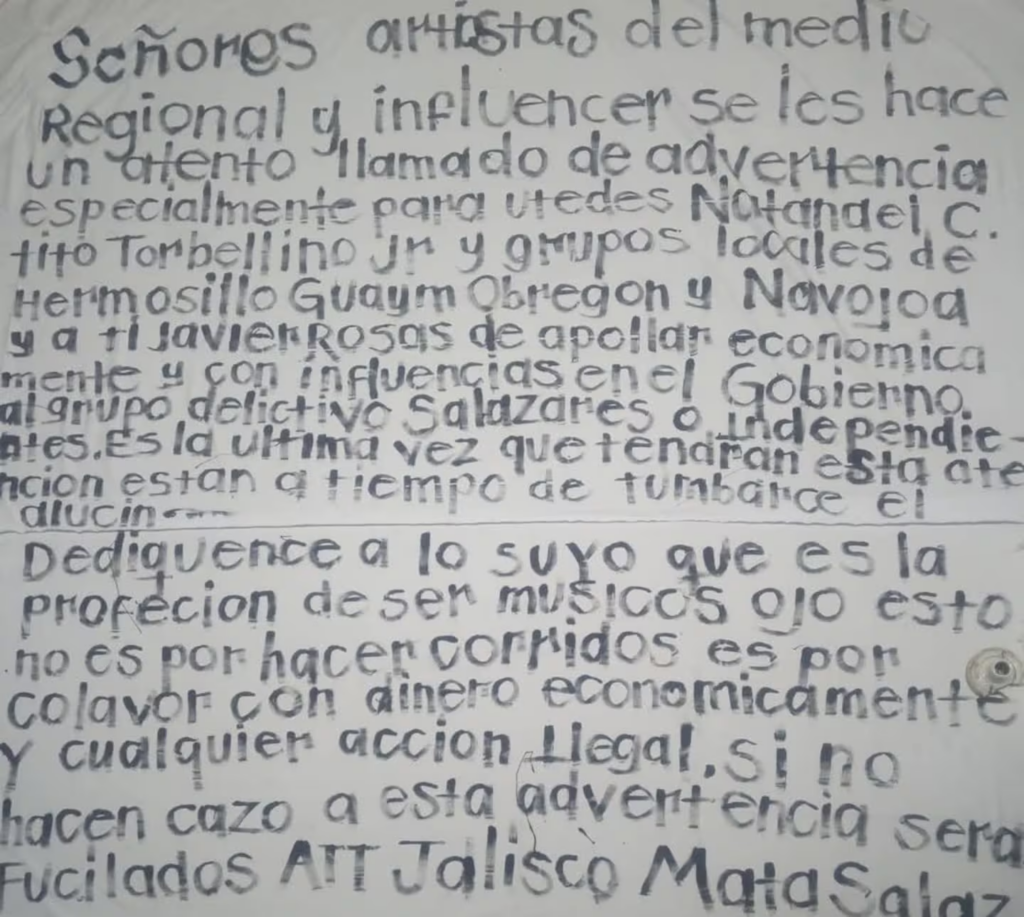 Señores artistas del medio
Regional y influencer se les hace
un atento llamado de advertencia
especialmente para utedes Natandel C.
tito Torbellino Jr y grupos locales de
Hermosillo Guaym Obregon y Navojoa
y a ti Javier Rosas de apollar economica
mente y con influencias en el Gobierno.
al grupo delictivo Salazares o independie-
ntes. Es la ultima vez que tendran esta ate
ncion estan a tiempo de tumbarce el
alucin
Dediquence a lo suyo que es la
profecion de ser musicos ojo esto
no es por hacer corridos es por
colavor con dinero economicamente
Y cualquier accion Ilegal, si no
hacen cazo a esta advertencia sera
Fucilados ATT Jalisco Mata Salaz